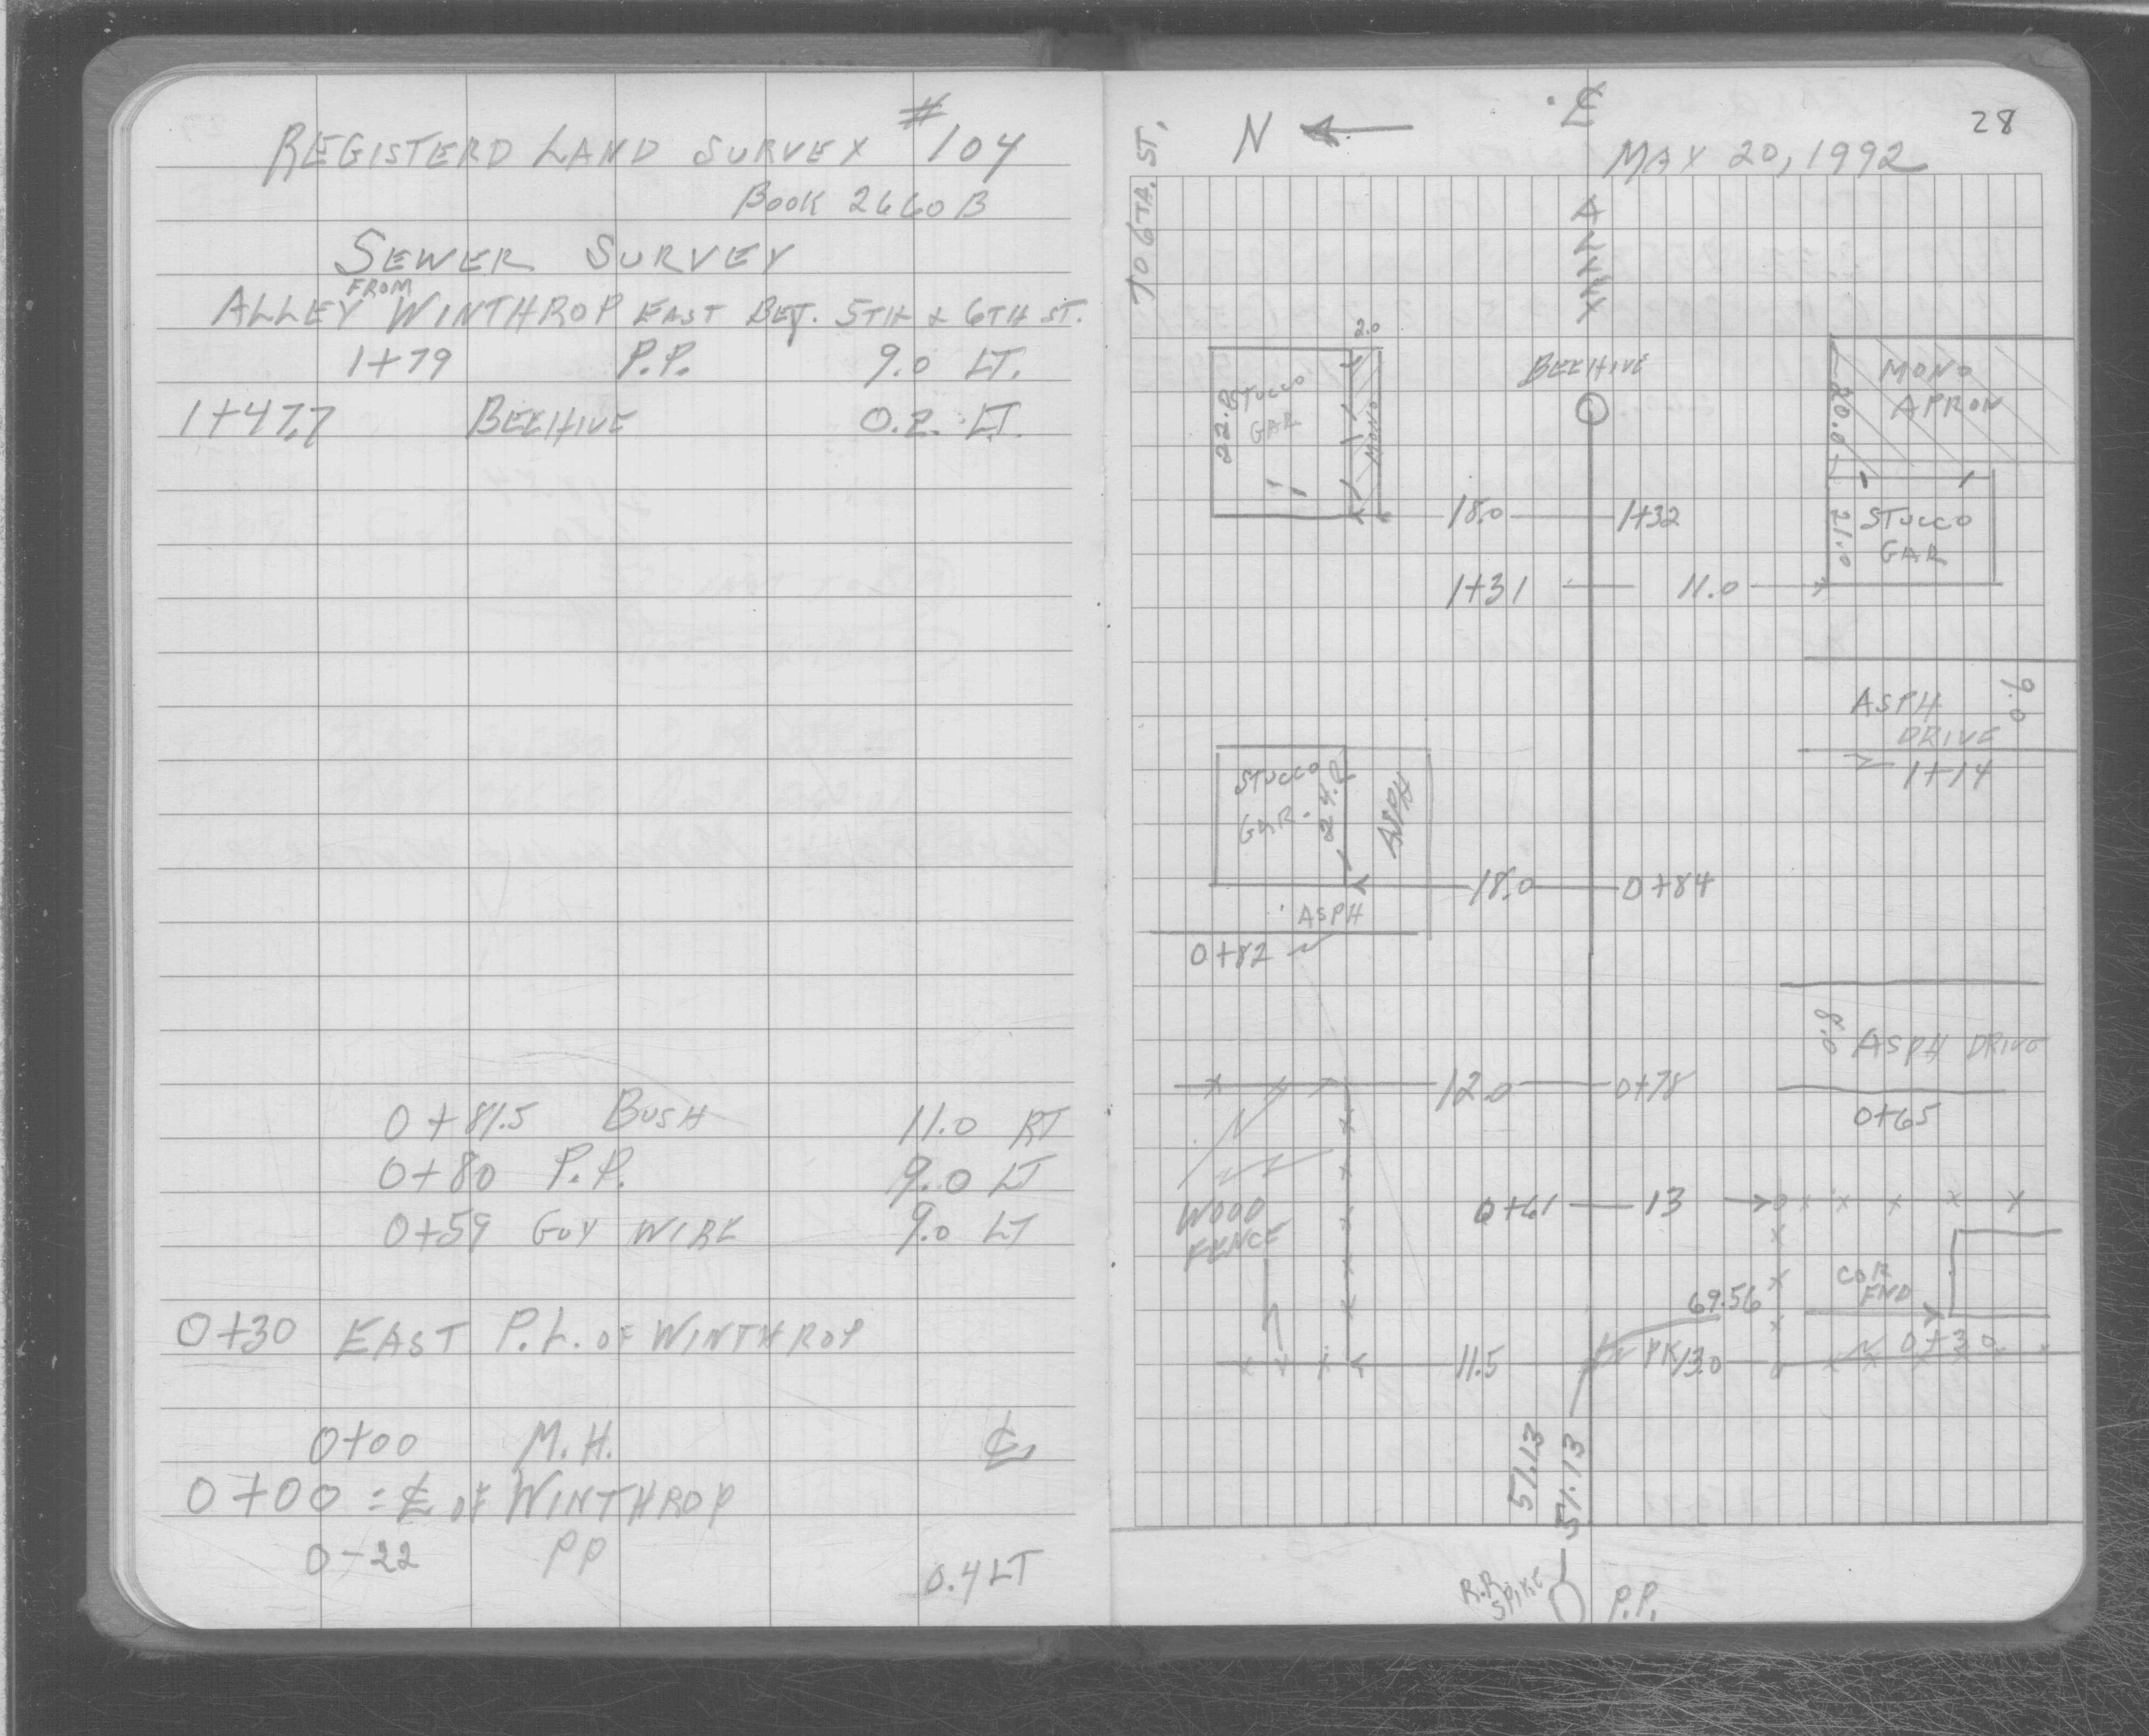 REGISTERD LAND SURVEY #104
BOOK 2660B
SEWER SURVEY
ALLEY FROM WINTHROP EAST BET. 5TH & 6TH ST.
1+79 P.P. 9.0 LT.
1+47.7 BEEHIVE 0.2 LT.
0+81.5 BUSH 11.0 RT
0+80 P.P. 9.0 LT
0+59 GUY WIRE 9.0 LT
0+30 EAST P.L. OF WINTHROP
0+00 M.H. ℄
0+00 = ℄ OF WINTHROP
0-22 PP 0.4 LT
28
TO 6TH. ST.
N
℄
MAY 20, 1992
ALLEY
2.0
22.2
STUCCO
GAR
MONO
BEEHIVE
20.0
MONO
APRON
18.0 1+32
21.0
STUCCO
GAR
1+31 11.0
ASPH
DRIVE
9.0
1+14
STUCCO
GAR.
24.2
ASPH
18.0 0+84
ASPH
0+82
8.0 ASPH DRIVE
12.0 0+78
0+65
WOOD
FENCE
0+61 13
COR
FND
69.56
11.5 PK 13.0 0+30
51.13
51.13
R.R.
SPIKE
P.P.